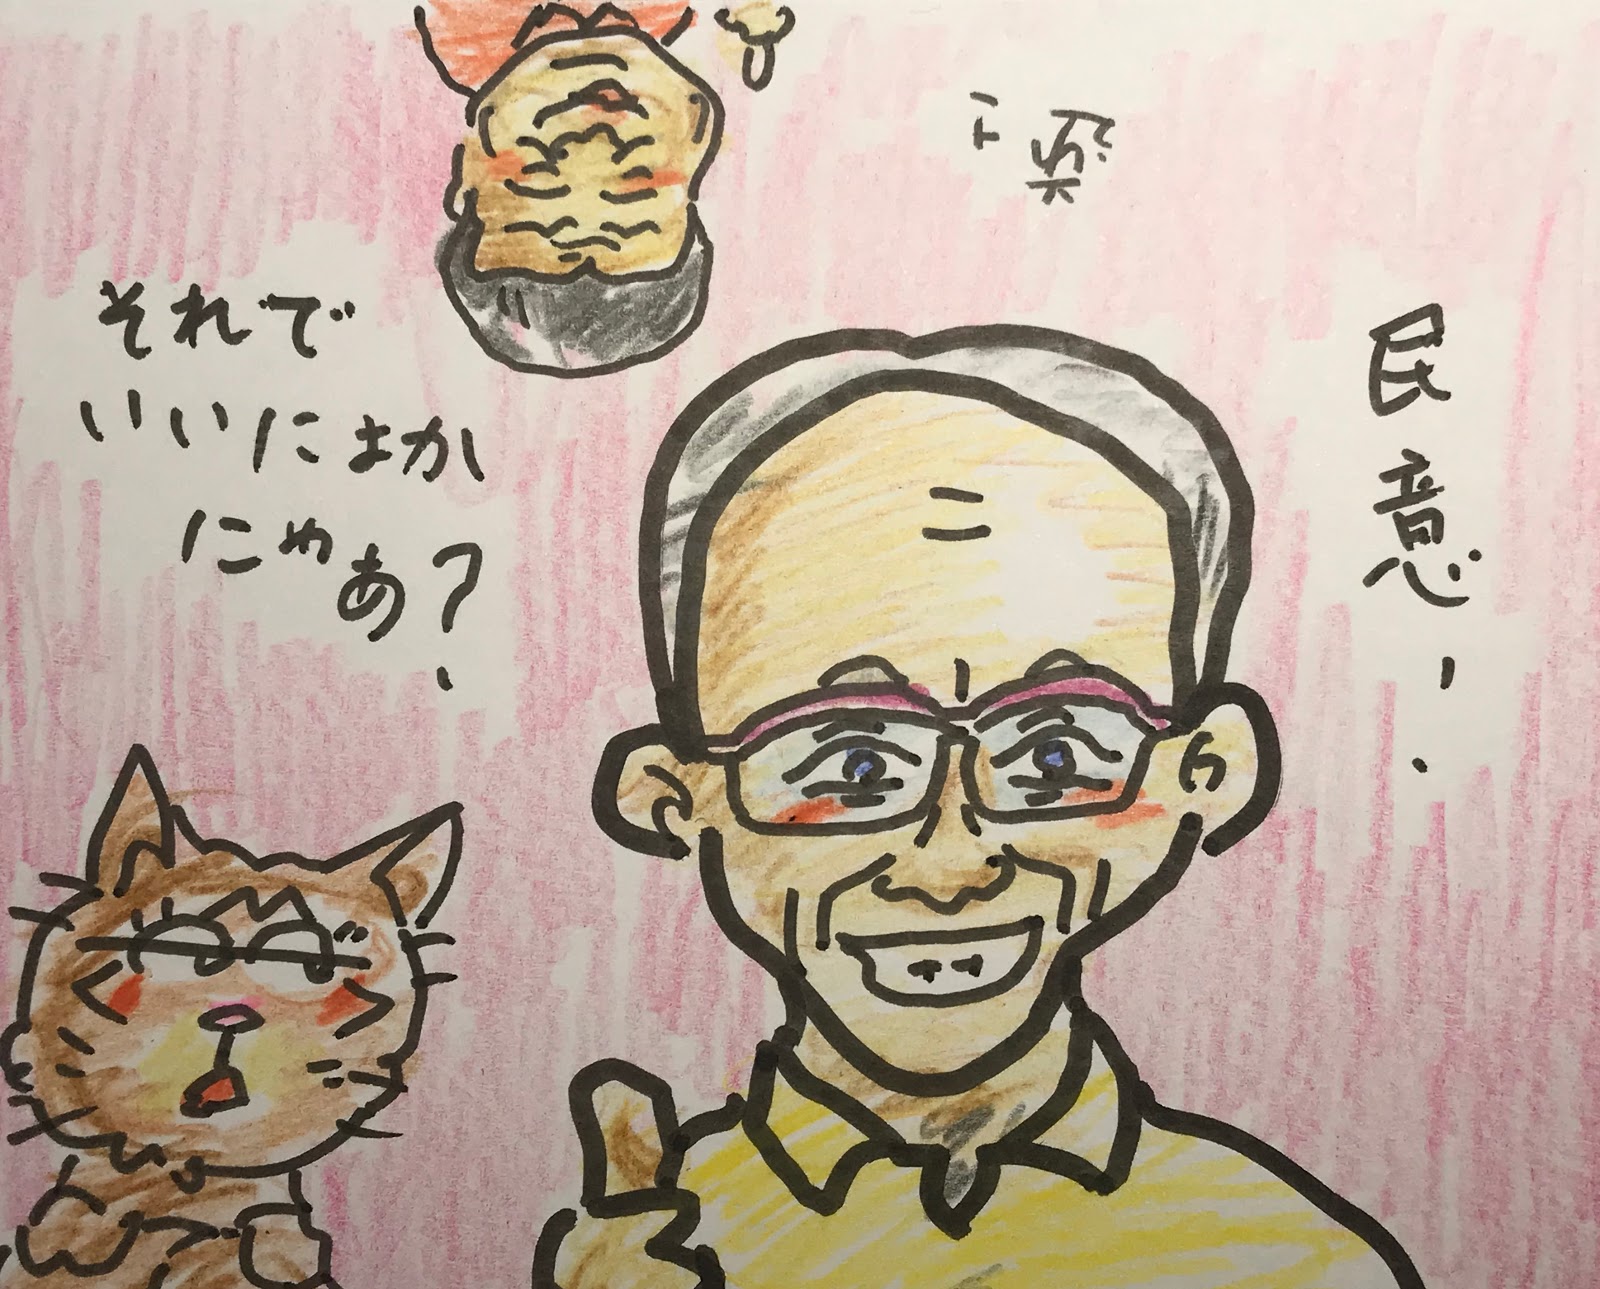 民意!
それで
いいにょか
にゃあ?